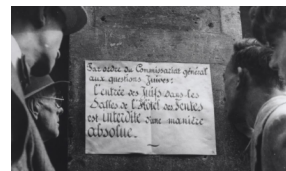 Par ordre du Commissariat général
aux questions Juives:
L'entrée des Juifs dans les
Salles de l'Hôtel des Ventes
est interdite d'une manière
absolue.